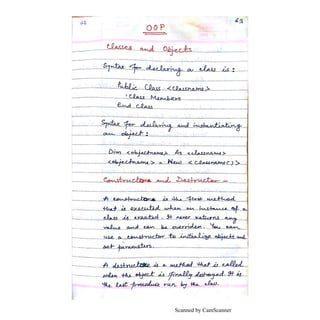 63
OOP
Classes and Objects
Syntax for declaring a class is :
Public Class <classname>
' Class Members
End Class
Syntax for declaring and instantiating
an object :
Dim <objectname> As <classname>
<objectname> = New <classname()>
Constructor and Destructor -
A constructor is the first method
that is executed when an instance of a
class is created. It never returns any
value and can be overriden. You can
use a constructor to initialize objects and
set parameters.
A destructor is a method that is called
when the object is finally destroyed. It is
the last procedure run by the class.
Scanned by CamScanner